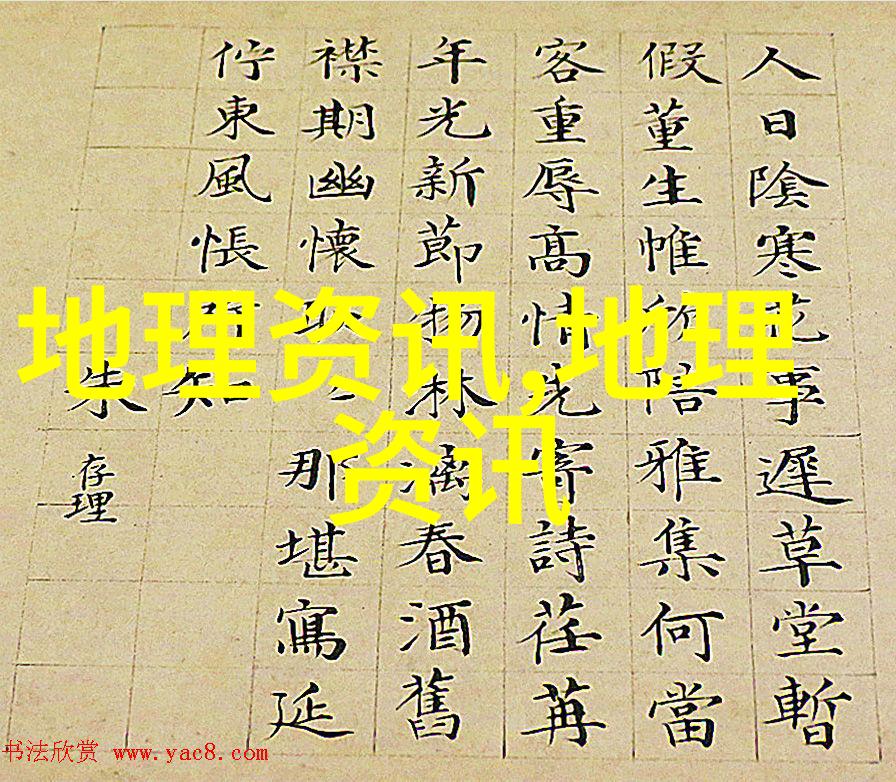 人日陰寒花事遲草堂暫
假董生帷欣陪雅集何當
客重辱高情先寄詩荏苒
年光新節物淋漓春酒舊
襟期幽懷耿〻那堪寫延
佇東風悵所知
朱存理
地理资讯,地理
资讯
书法欣赏 www.yac8.com